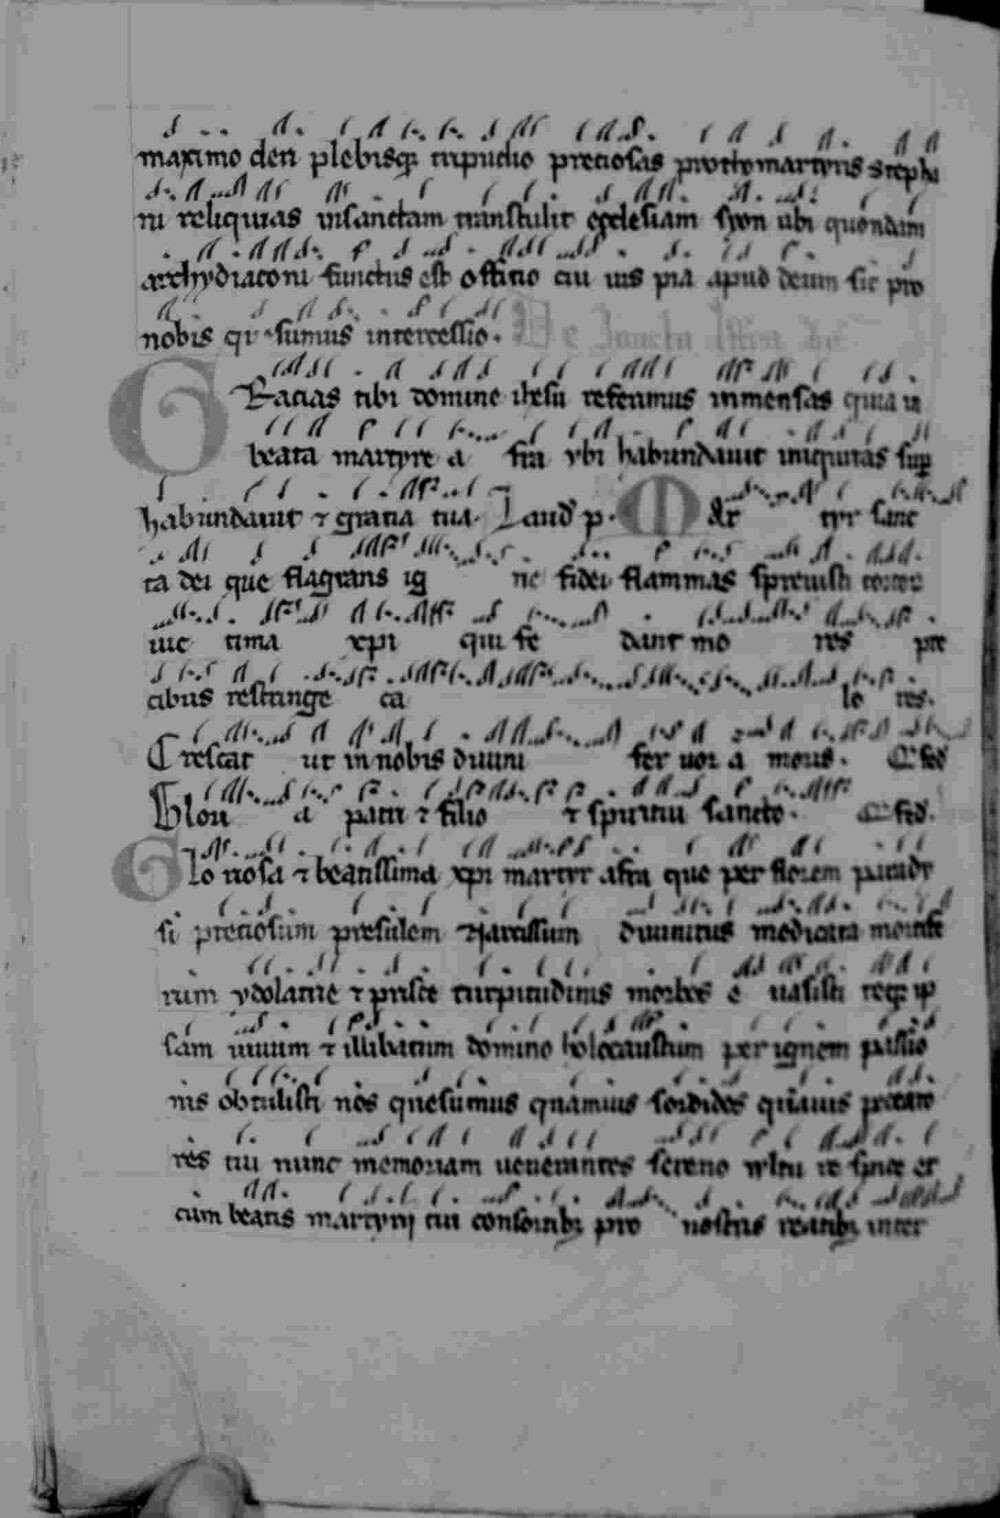 maximo cleri plebisq; tripudio preciosas prothomartyris stepha
ni reliquias insanctam transtulit ecclesiam syon ubi quondam
archydiaconi functus est officio cui uis pia apud deum sit pro
nobis qs sumus intercessio. De sancta Affra
Gracias tibi domine ihesu referimus inmensas quia in
beata martyre a fra ybi habundauit iniquitas sup
habundauit ⁊ gratia tua. Laud p. Mar tyr sanc
ta dei que flagrans ig ne fidei flammas spreuisti
tima xpi qui fe dant mo res pre
cibus restringe ca lo res.
Crescat ut in nobis diuini fer uor a moris. Q fed
Glori a patri ⁊ filio ⁊ spiritui sancto. Q fed.
Glo riosa ⁊ beatissima xpi martyr afra que per florem paradi
si preciosum presulem Narcissum diuinitus medicata
rum ydolatrie ⁊ prisce turpitudinis morbos e uasisti teq; ip
sam uiuum ⁊ illibatum domino holocaustum per ignem passio
nis obtulisti nos quesumus quamuis sordidos peccato
res tui nunc memoriam uenerantes sereno wltu respice et
cum beatis martyrij tui consortib; pro nostris reatib; inter